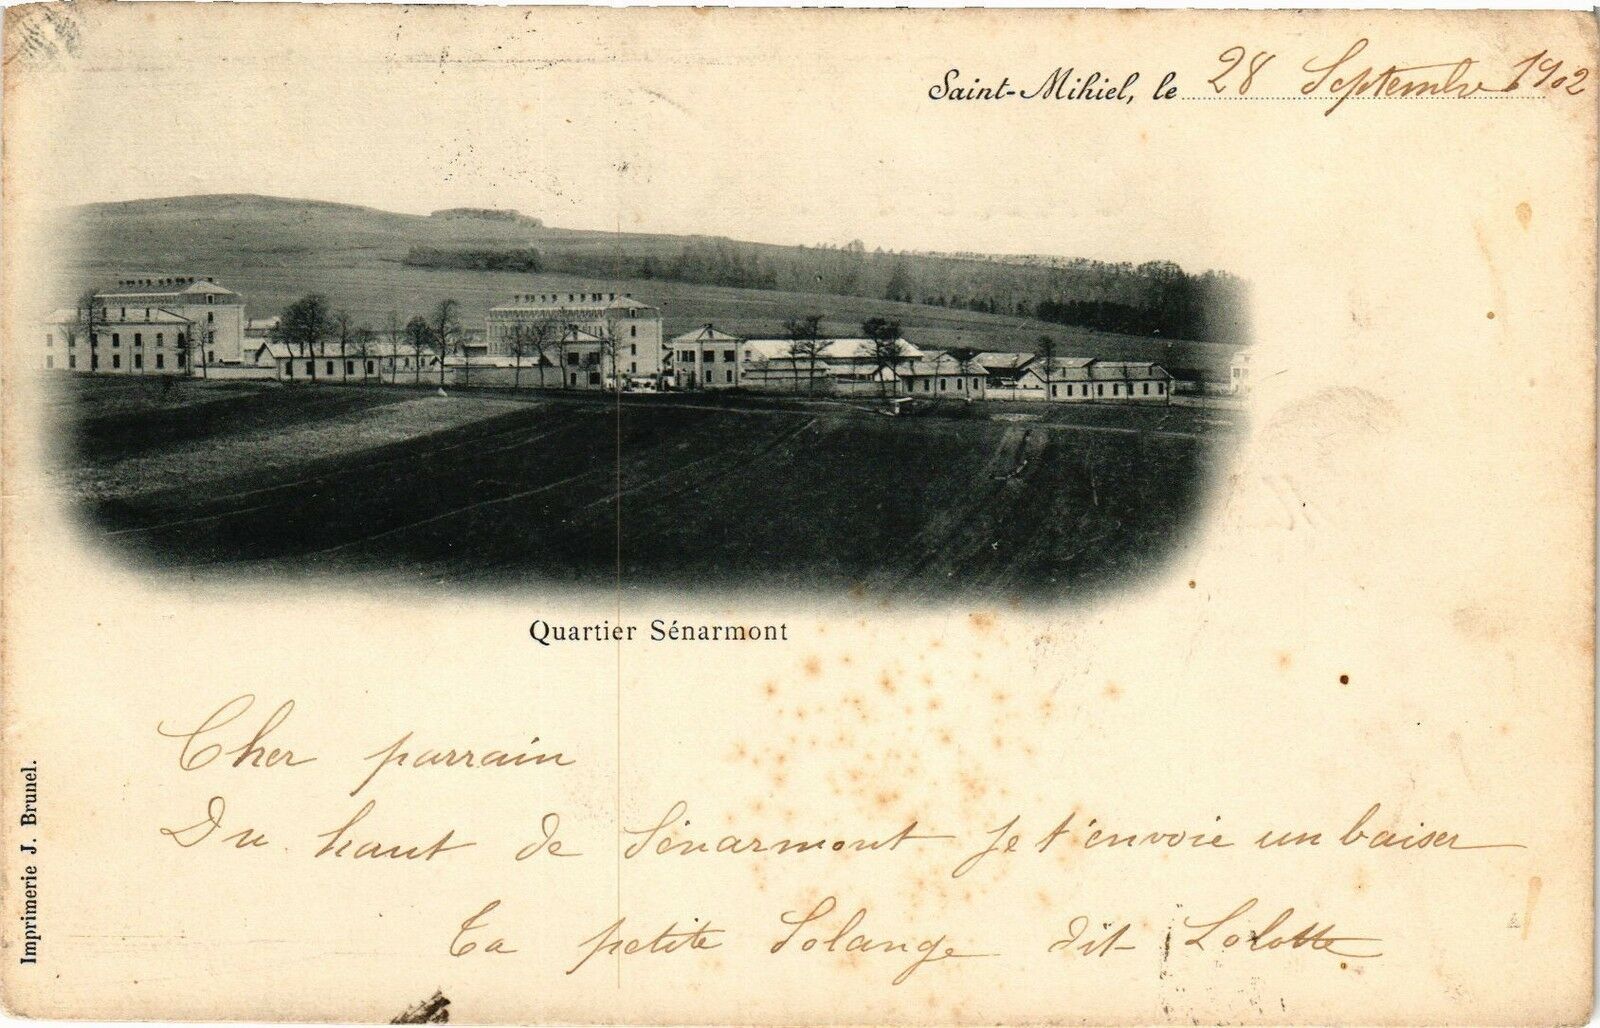 Saint-Mihiel, le 28 Septembre 1902
Quartier Sénarmont
Cher parrain
Du haut de Sénarmont je t'envoie un baiser
Ta petite Solange dit Lolotte
Imprimerie J. Brunel.